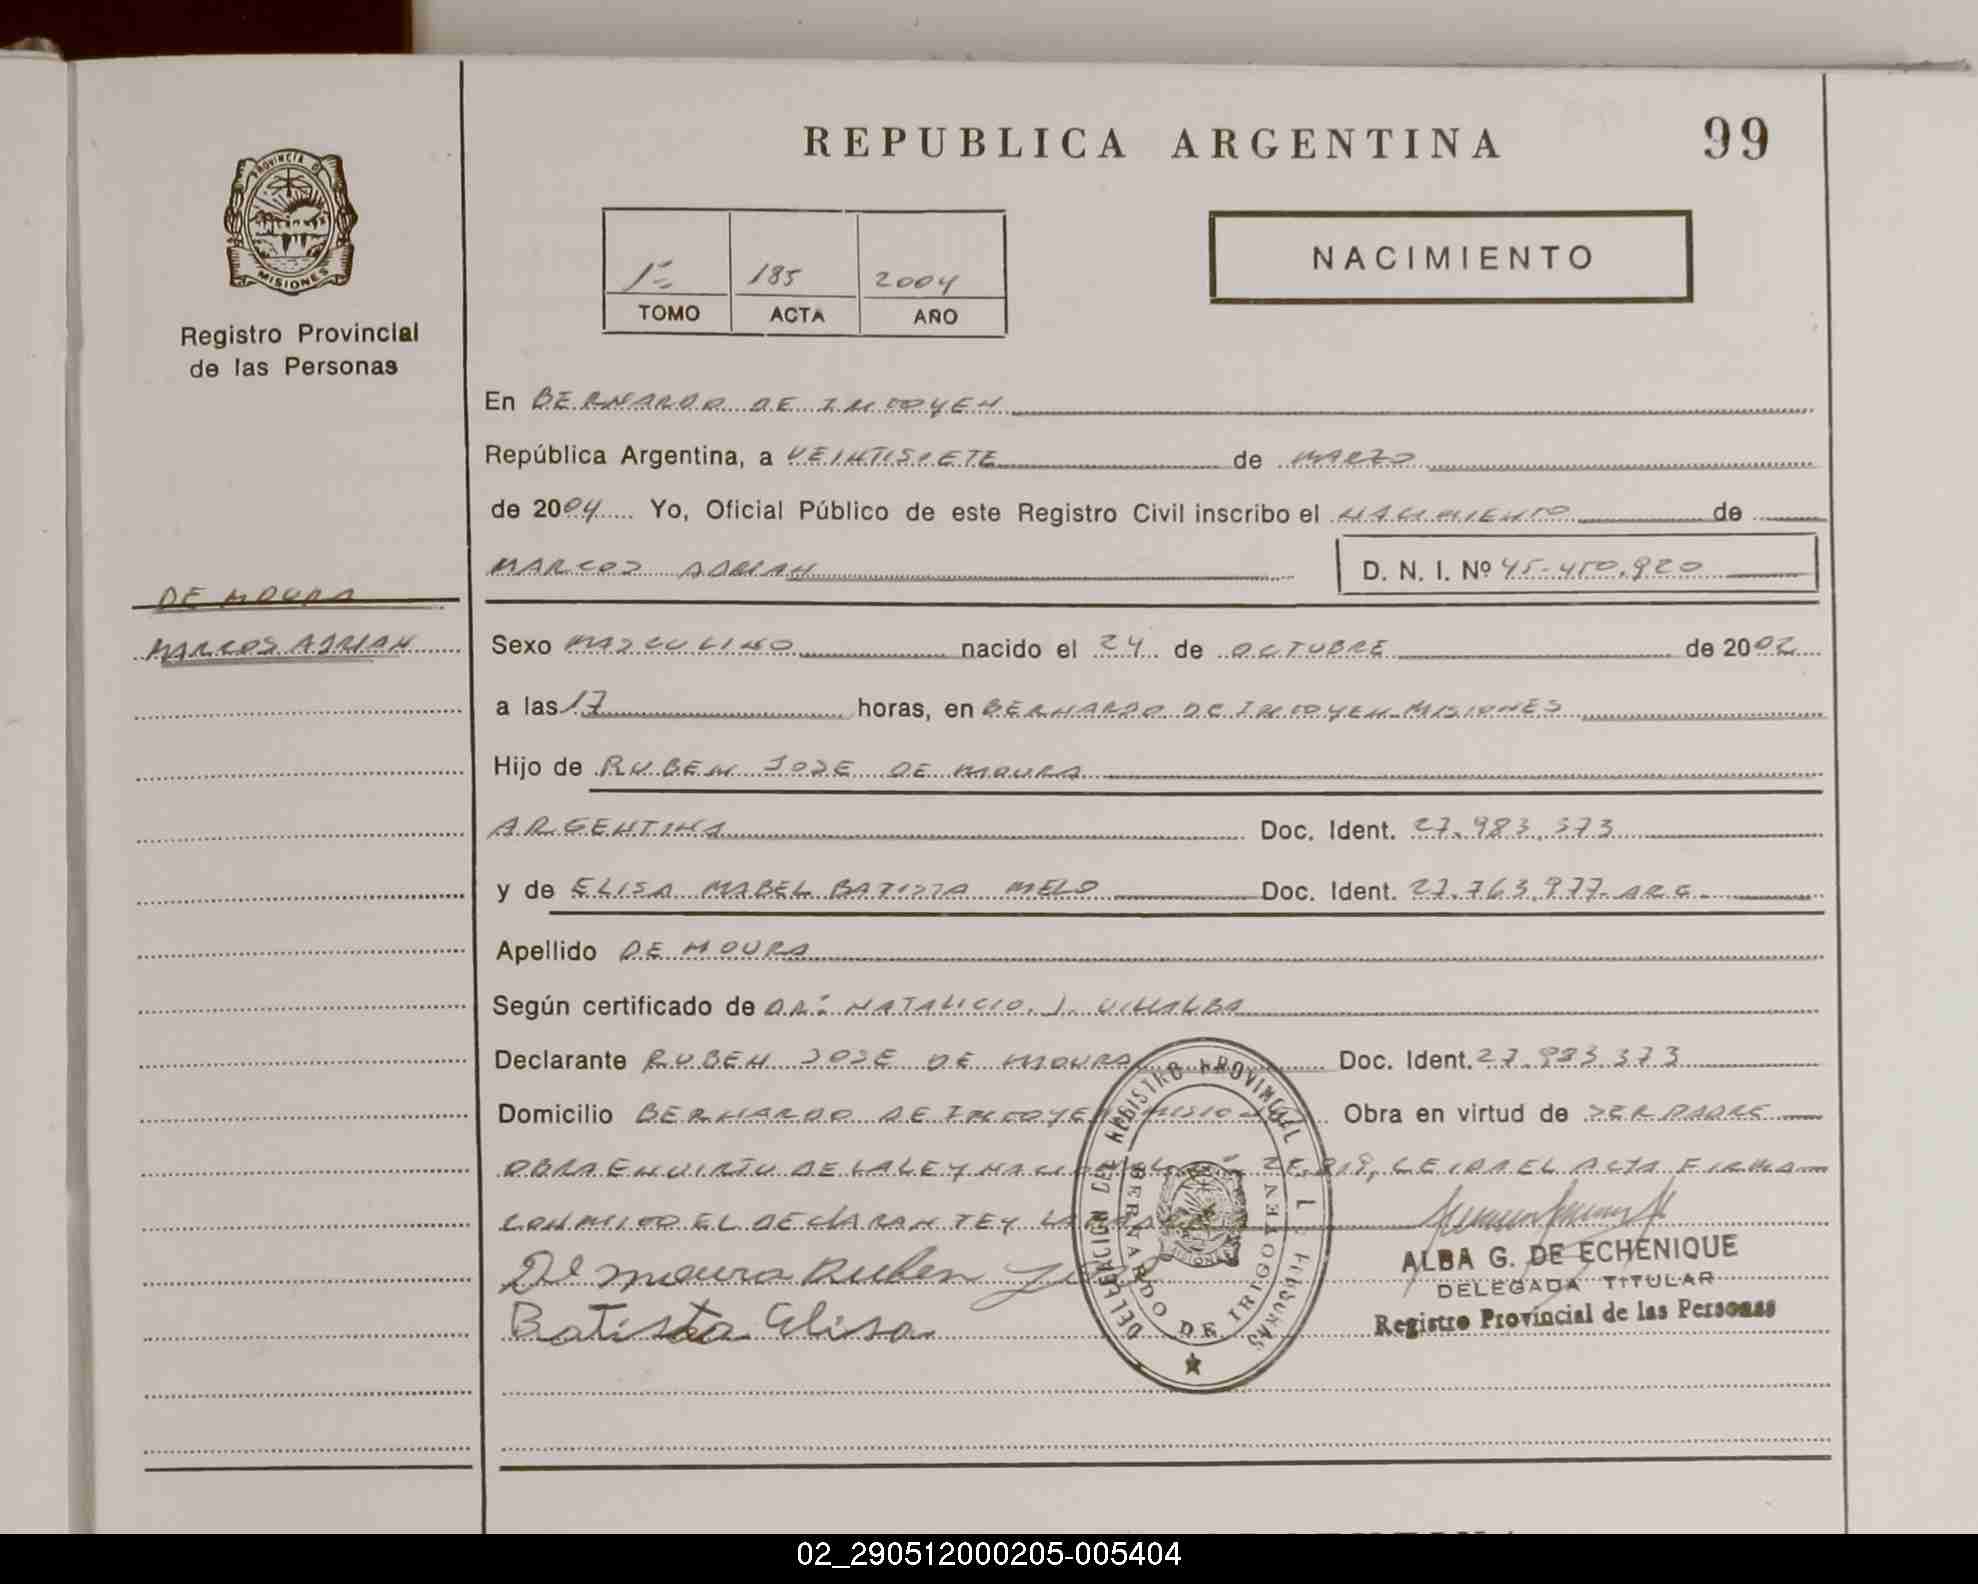 REPUBLICA ARGENTINA
99
PROVINCIA D
MISIONES
Registro Provincial
de las Personas
1º 185 2004
TOMO ACTA AÑO
NACIMIENTO
En BERNARDO DE IRIGOYEN
República Argentina, a VEINTISIETE de MARZO
de 2004 Yo, Oficial Público de este Registro Civil inscribo el NACIMIENTO de
MARCOS ADRIAN D. N. I. Nº 45-450.920
DE MOURA
MARCOS ADRIAN
Sexo MASCULINO nacido el 24 de OCTUBRE de 2002
a las 17 horas, en BERNARDO DE IRIGOYEN-MISIONES
Hijo de RUBEN JOSE DE MOURA
ARGENTINA Doc. Ident. 27.983.373
y de ELISA MABEL BATISTA MELO Doc. Ident. 27.763.977-ARG.
Apellido DE MOURA
Según certificado de DR: NATALICIO. J. VILLALBA
Declarante RUBEN JOSE DE MOURA Doc. Ident. 27.983.373
Domicilio BERNARDO DE IRIGOYEN MISIONES Obra en virtud de SER PADRE
OBRA EN VIRTU DE LA LEY NACIONAL LEIDA EL ACTA FIRMA
CONMIGO EL DECLARANTE Y LA MADRE
De Moura Ruben José
Batista Elisa
DELEGACION DEL REGISTRO PROVINCIAL DE LAS PERSONAS
BERNARDO DE IRIGOYEN
ALBA G. DE ECHENIQUE
DELEGADA TITULAR
Registro Provincial de las Personas
02_290512000205-005404